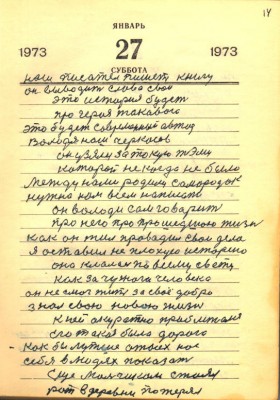 14
ЯНВАРЬ
1973 27 1973
СУББОТА
наш писател пишет книгу
он выводит слова свои
это история будет
про героя такового
это будет современный автор
Володя наш черкасов
он узял за такую тэму
которой не когда не было
между нами родим самородок
нужно нам всем написать
он володи сам говорит
про него про прошедшою жизн
как он жил провадил свои дела
я оставил не плохую историю
она клалса по всему свету
как за чужога человека
он не мог жить за своё добро
знал свою новою жизн
к ней акуратно приближалса
его такая была дорога
как бы лутше отвсех нас
себя в людях показат
еще малчишкам